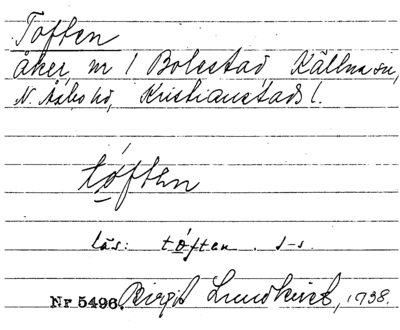 Toften
åker, nr 1 Bolestad Källna sn,
N. Åsbo hd, Kristianstads l.
tóften
läs: tóften. s-s.
Nr 5496. Birgit Lundkvist, 1938.